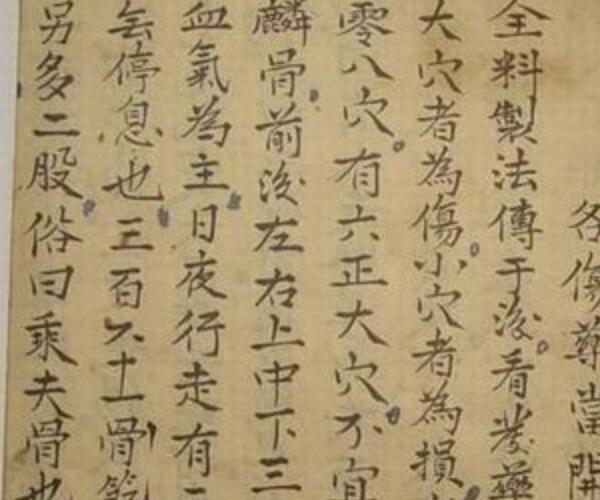 各傷藥當開
全料製法傳于後看發藥
大穴者為傷小穴者為損
零八穴有六正大穴不宜
麟骨前後左右上中下三
血氣為主日夜行走有
無停息也三百六十骨節
另多二股俗曰乘夫骨也